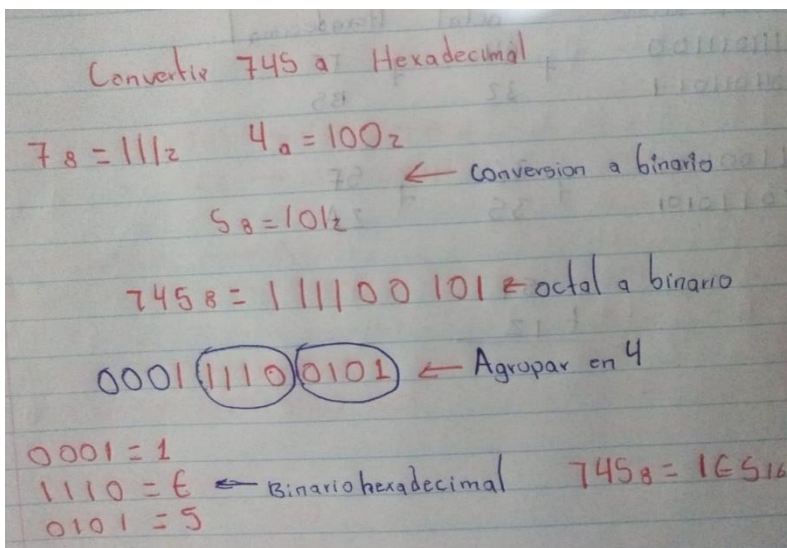 Convertir 745 a Hexadecimal
7 8 = 1112 4 8 = 1002
← Conversion a binario
5 8 = 1012
745 8 = 111100 101 ← octal a binario
000111100101 ← Agrupar en 4
0001 = 1
1110 = E ← Binario hexadecimal 745 8 = 1E5 16
0101 = 5